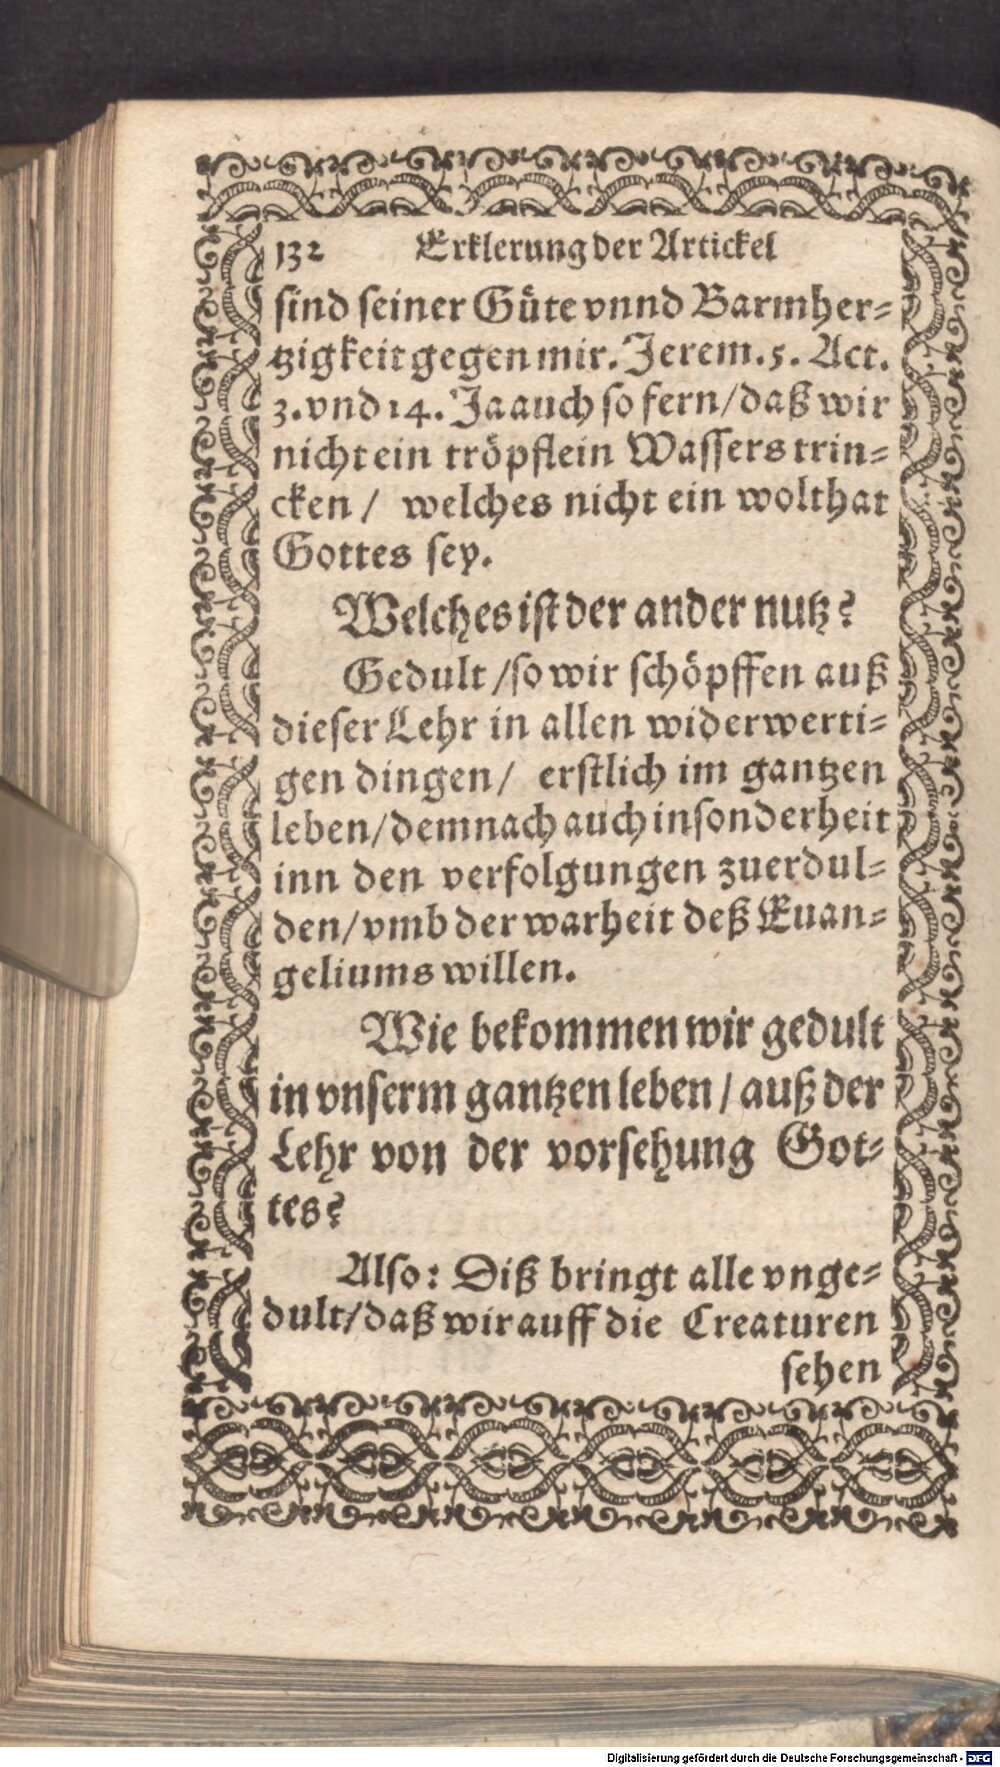 132 Erklerung der Artickel
sind seiner Güte vnnd Barmher⸗
tzigkeit gegen mir. Jerem. 5. Act.
3. vnd 14. Ja auch so fern/ daß wir
nicht ein tröpflein Wassers trin⸗
cken / welches nicht ein wolthat
Gottes sey.
Welches ist der ander nutz?
Gedult / so wir schöpffen auß
dieser Lehr in allen widerwerti⸗
gen dingen / erstlich im gantzen
leben/ demnach auch insonderheit
inn den verfolgungen zuerdul⸗
den/ vmb der warheit deß Euan⸗
geliums willen.
Wie bekommen wir gedult
in vnserm gantzen leben / auß der
Lehr von der vorsehung Got⸗
tes?
Also: Diß bringt alle vnge⸗
dult/ daß wir auff die Creaturen
sehen
Digitalisierung gefördert durch die Deutsche Forschungsgemeinschaft - DFG